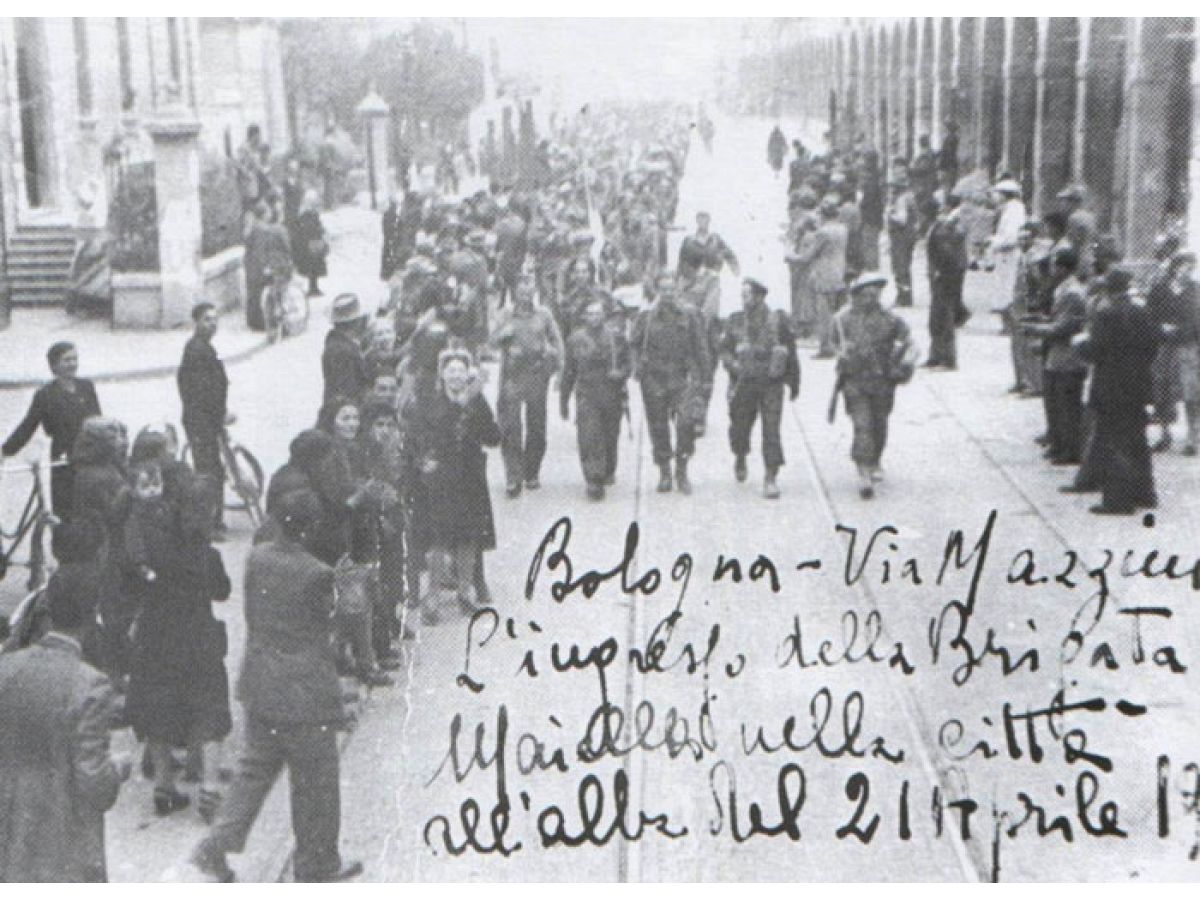 Bologna - Via Mazzini
L'ingresso della Brigata
Maiella nella città
all'alba del 21 Aprile 19